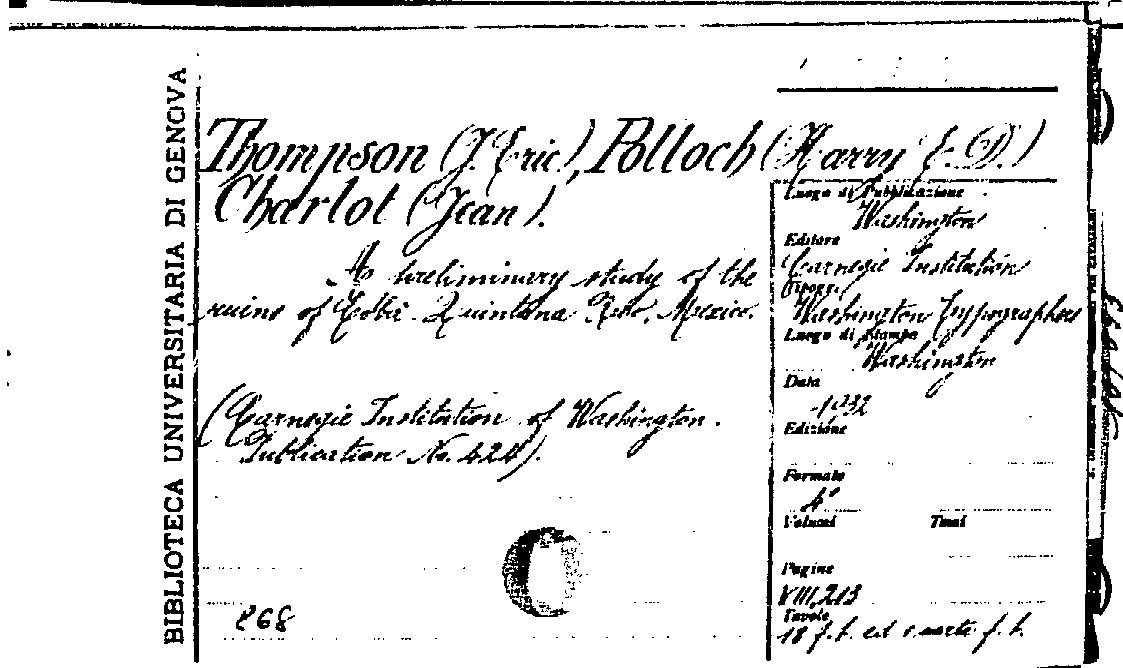 BIBLIOTECA UNIVERSITARIA DI GENOVA
Thompson (J. Eric), Polloch (Harry E. D.)
Charlot (Jean).
A preliminary study of the
ruins of Cobá. Quintana Roo, Mexico.
(Carnegie Institution of Washington.
Publication No. 424).
268
Luogo di Pubblicazione
Washington
Editore
Carnegie Institution
Tipogr.
Washington Typographers
Luogo di Stampa
Washington
Data
1932
Edizione
Formato
4°
Volumi Tomi
Pagine
VIII, 213
Tavole
18 f. t. ed carte f. t.